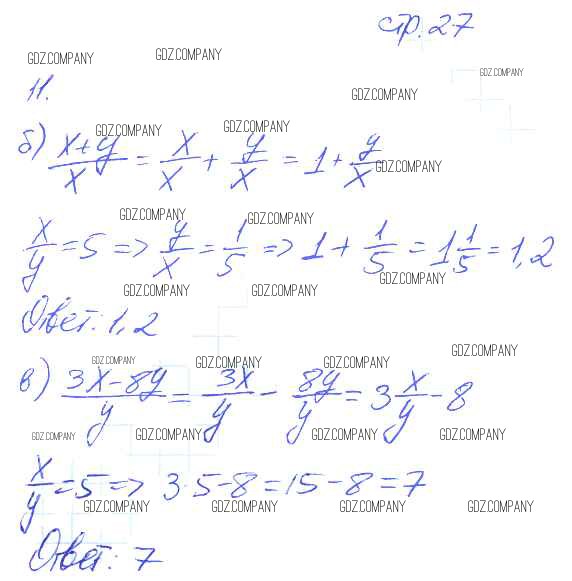 стр. 27
GDZ.COMPANY GDZ.COMPANY GDZ.COMPANY
11. GDZ.COMPANY
GDZ.COMPANY GDZ.COMPANY
б) (x+y)/x = x/x + y/x = 1 + y/x GDZ.COMPANY
GDZ.COMPANY GDZ.COMPANY
x/y = 5 => y/x = 1/5 => 1 + 1/5 = 1 1/5 = 1,2
GDZ.COMPANY GDZ.COMPANY GDZ.COMPANY
Ответ: 1,2
GDZ.COMPANY GDZ.COMPANY GDZ.COMPANY GDZ.COMPANY
в) (3x-8y)/y = 3x/y - 8y/y = 3 x/y - 8
GDZ.COMPANY GDZ.COMPANY GDZ.COMPANY GDZ.COMPANY
x/y = 5 => 3·5-8=15-8=7
GDZ.COMPANY GDZ.COMPANY GDZ.COMPANY GDZ.COMPANY
Ответ: 7